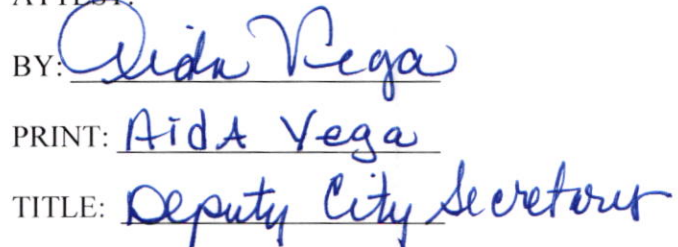 ATTEST:
BY: Aida Vega
PRINT: AidA Vega
TITLE: Deputy City Secretary